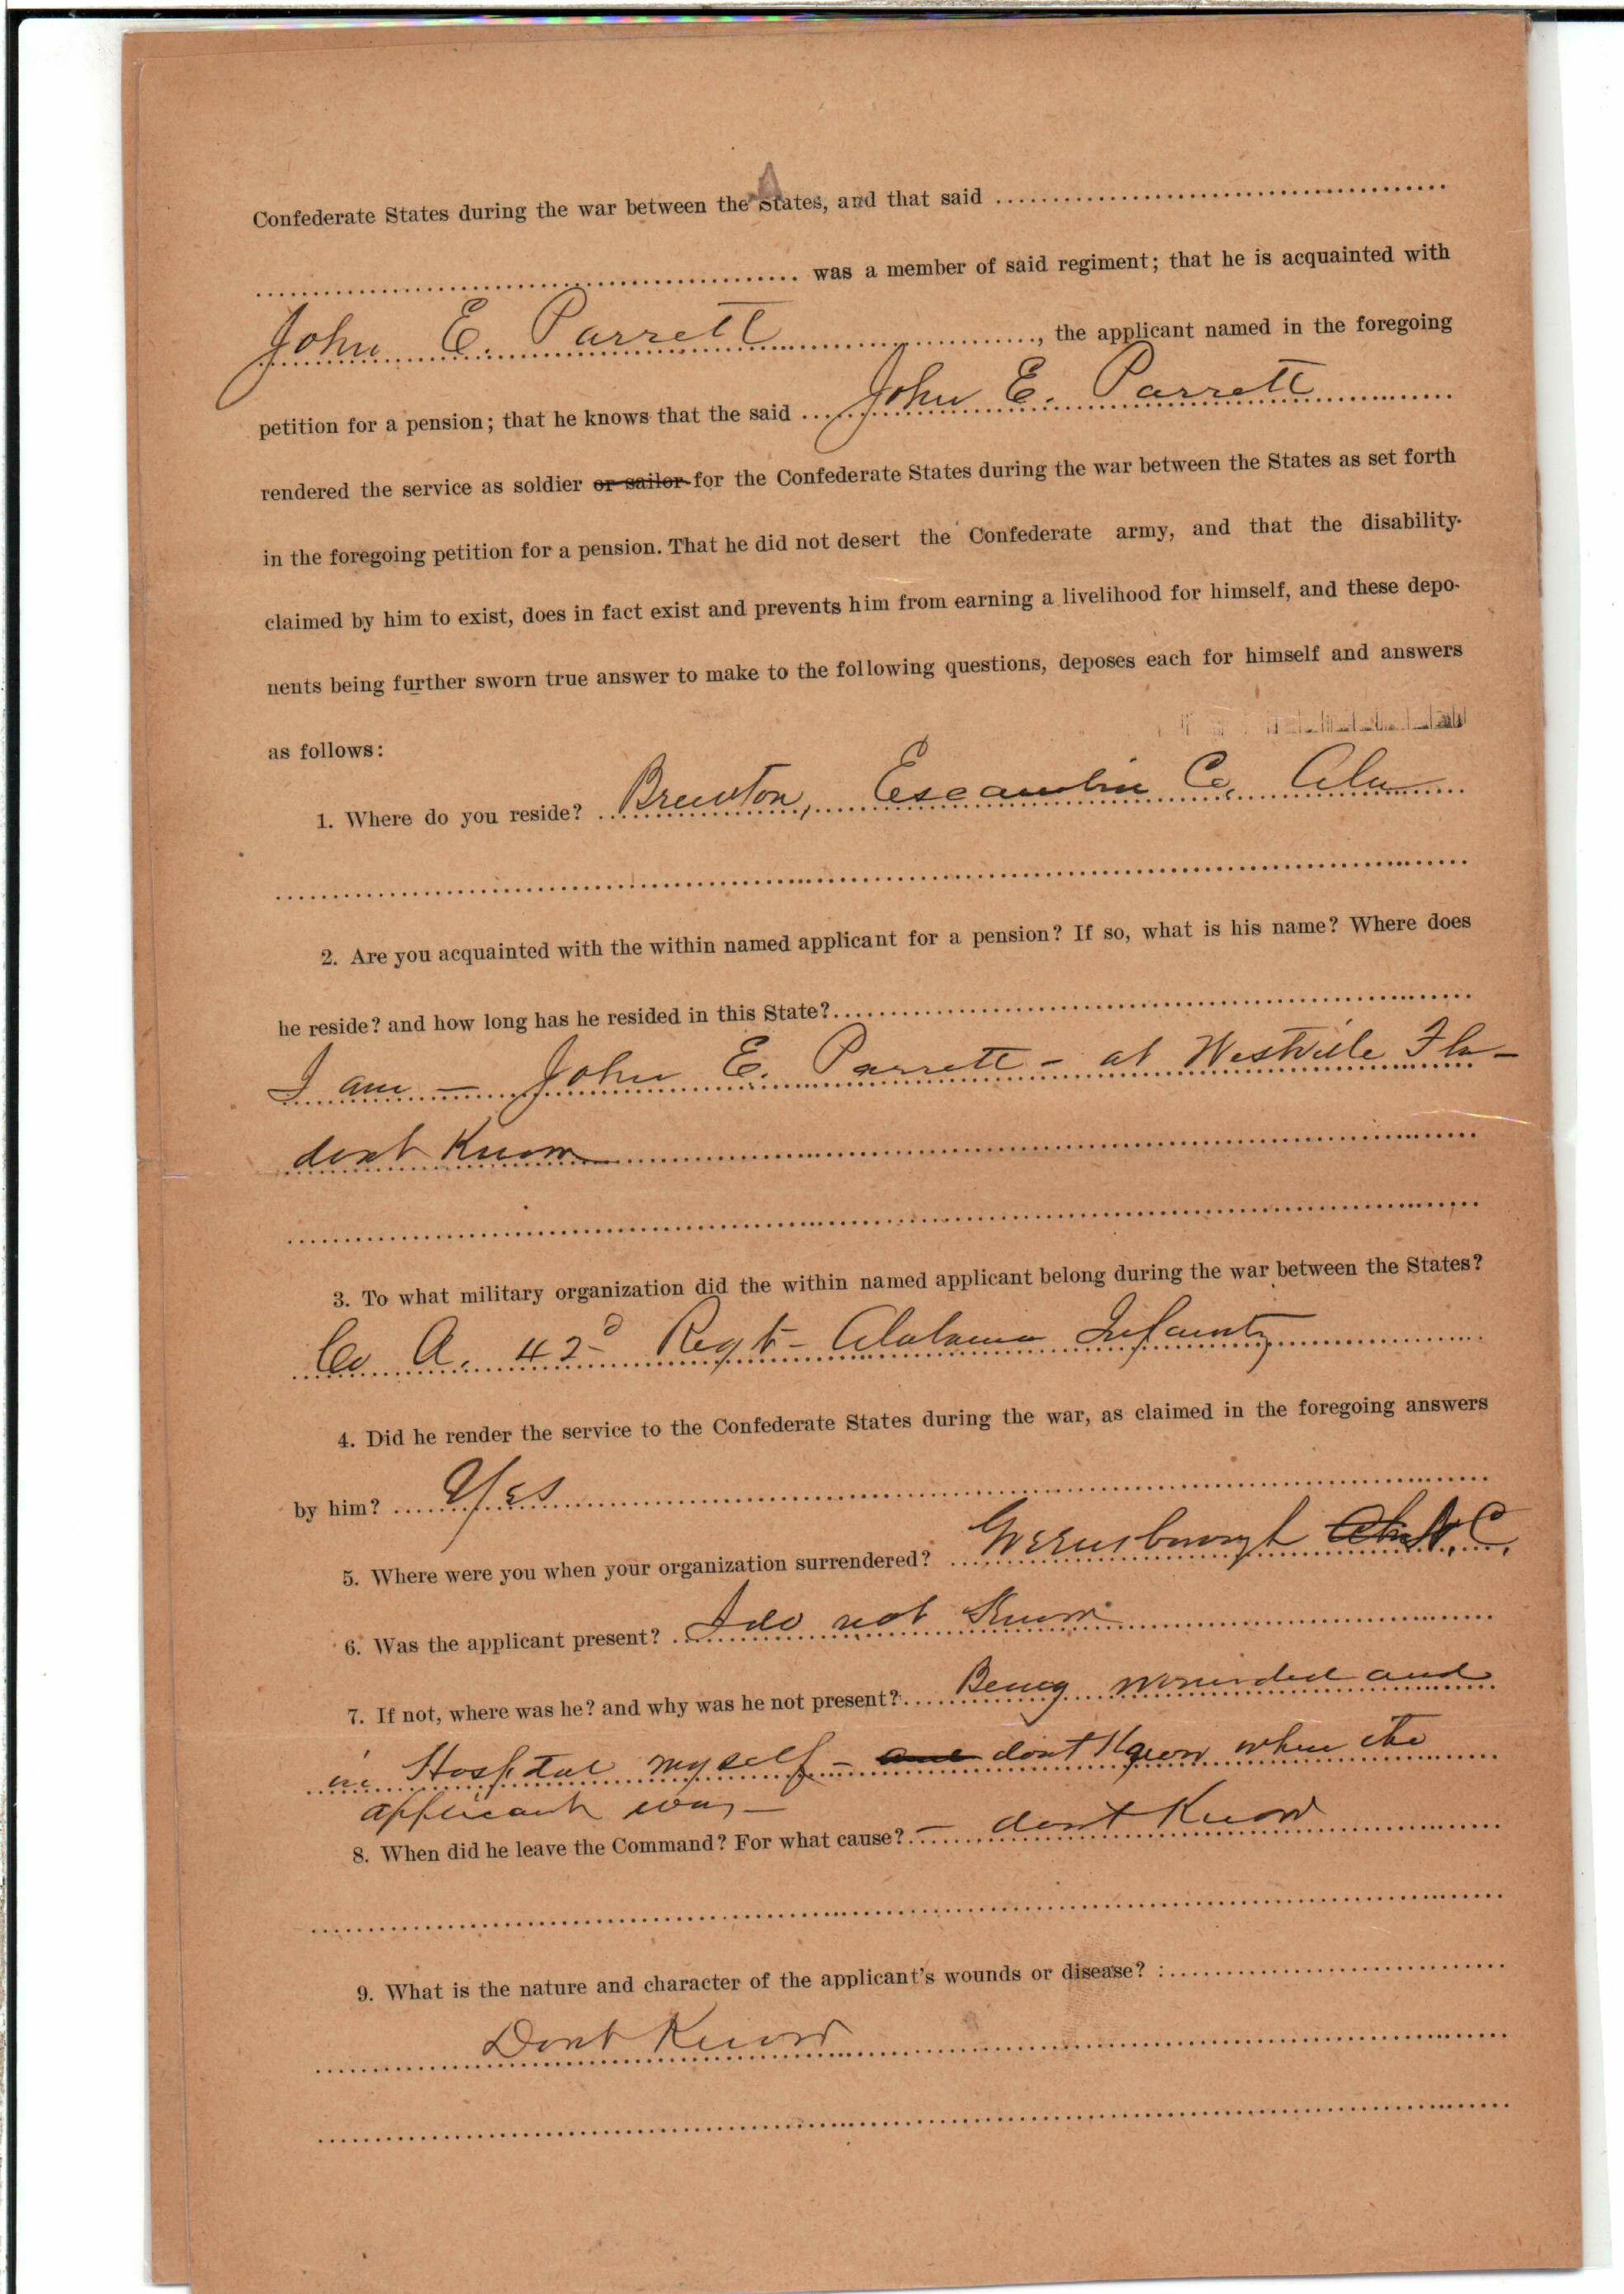 Confederate States during the war between the States, and that said
was a member of said regiment; that he is acquainted with
John E. Parrett, the applicant named in the foregoing
petition for a pension; that he knows that the said John E. Parrett
rendered the service as soldier or sailor for the Confederate States during the war between the States as set forth
in the foregoing petition for a pension. That he did not desert the Confederate army, and that the disability
claimed by him to exist, does in fact exist and prevents him from earning a livelihood for himself, and these depo-
nents being further sworn true answer to make to the following questions, deposes each for himself and answers
as follows:
1. Where do you reside? Brewton, Escambia Co, Ala
2. Are you acquainted with the within named applicant for a pension? If so, what is his name? Where does
he reside? and how long has he resided in this State?
I am – John E. Parrett – at Westville Fla –
dont Know
3. To what military organization did the within named applicant belong during the war between the States?
Co A. 42d Regt – Alabama Infanty
4. Did he render the service to the Confederate States during the war, as claimed in the foregoing answers
by him? Yes
5. Where were you when your organization surrendered? N. C.
6. Was the applicant present? I do not Know
7. If not, where was he? and why was he not present? Being wounded and
in Hospital myself – and dont Know when the
applicant was –
8. When did he leave the Command? For what cause? – dont Know
9. What is the nature and character of the applicant's wounds or disease? :
Dont Know